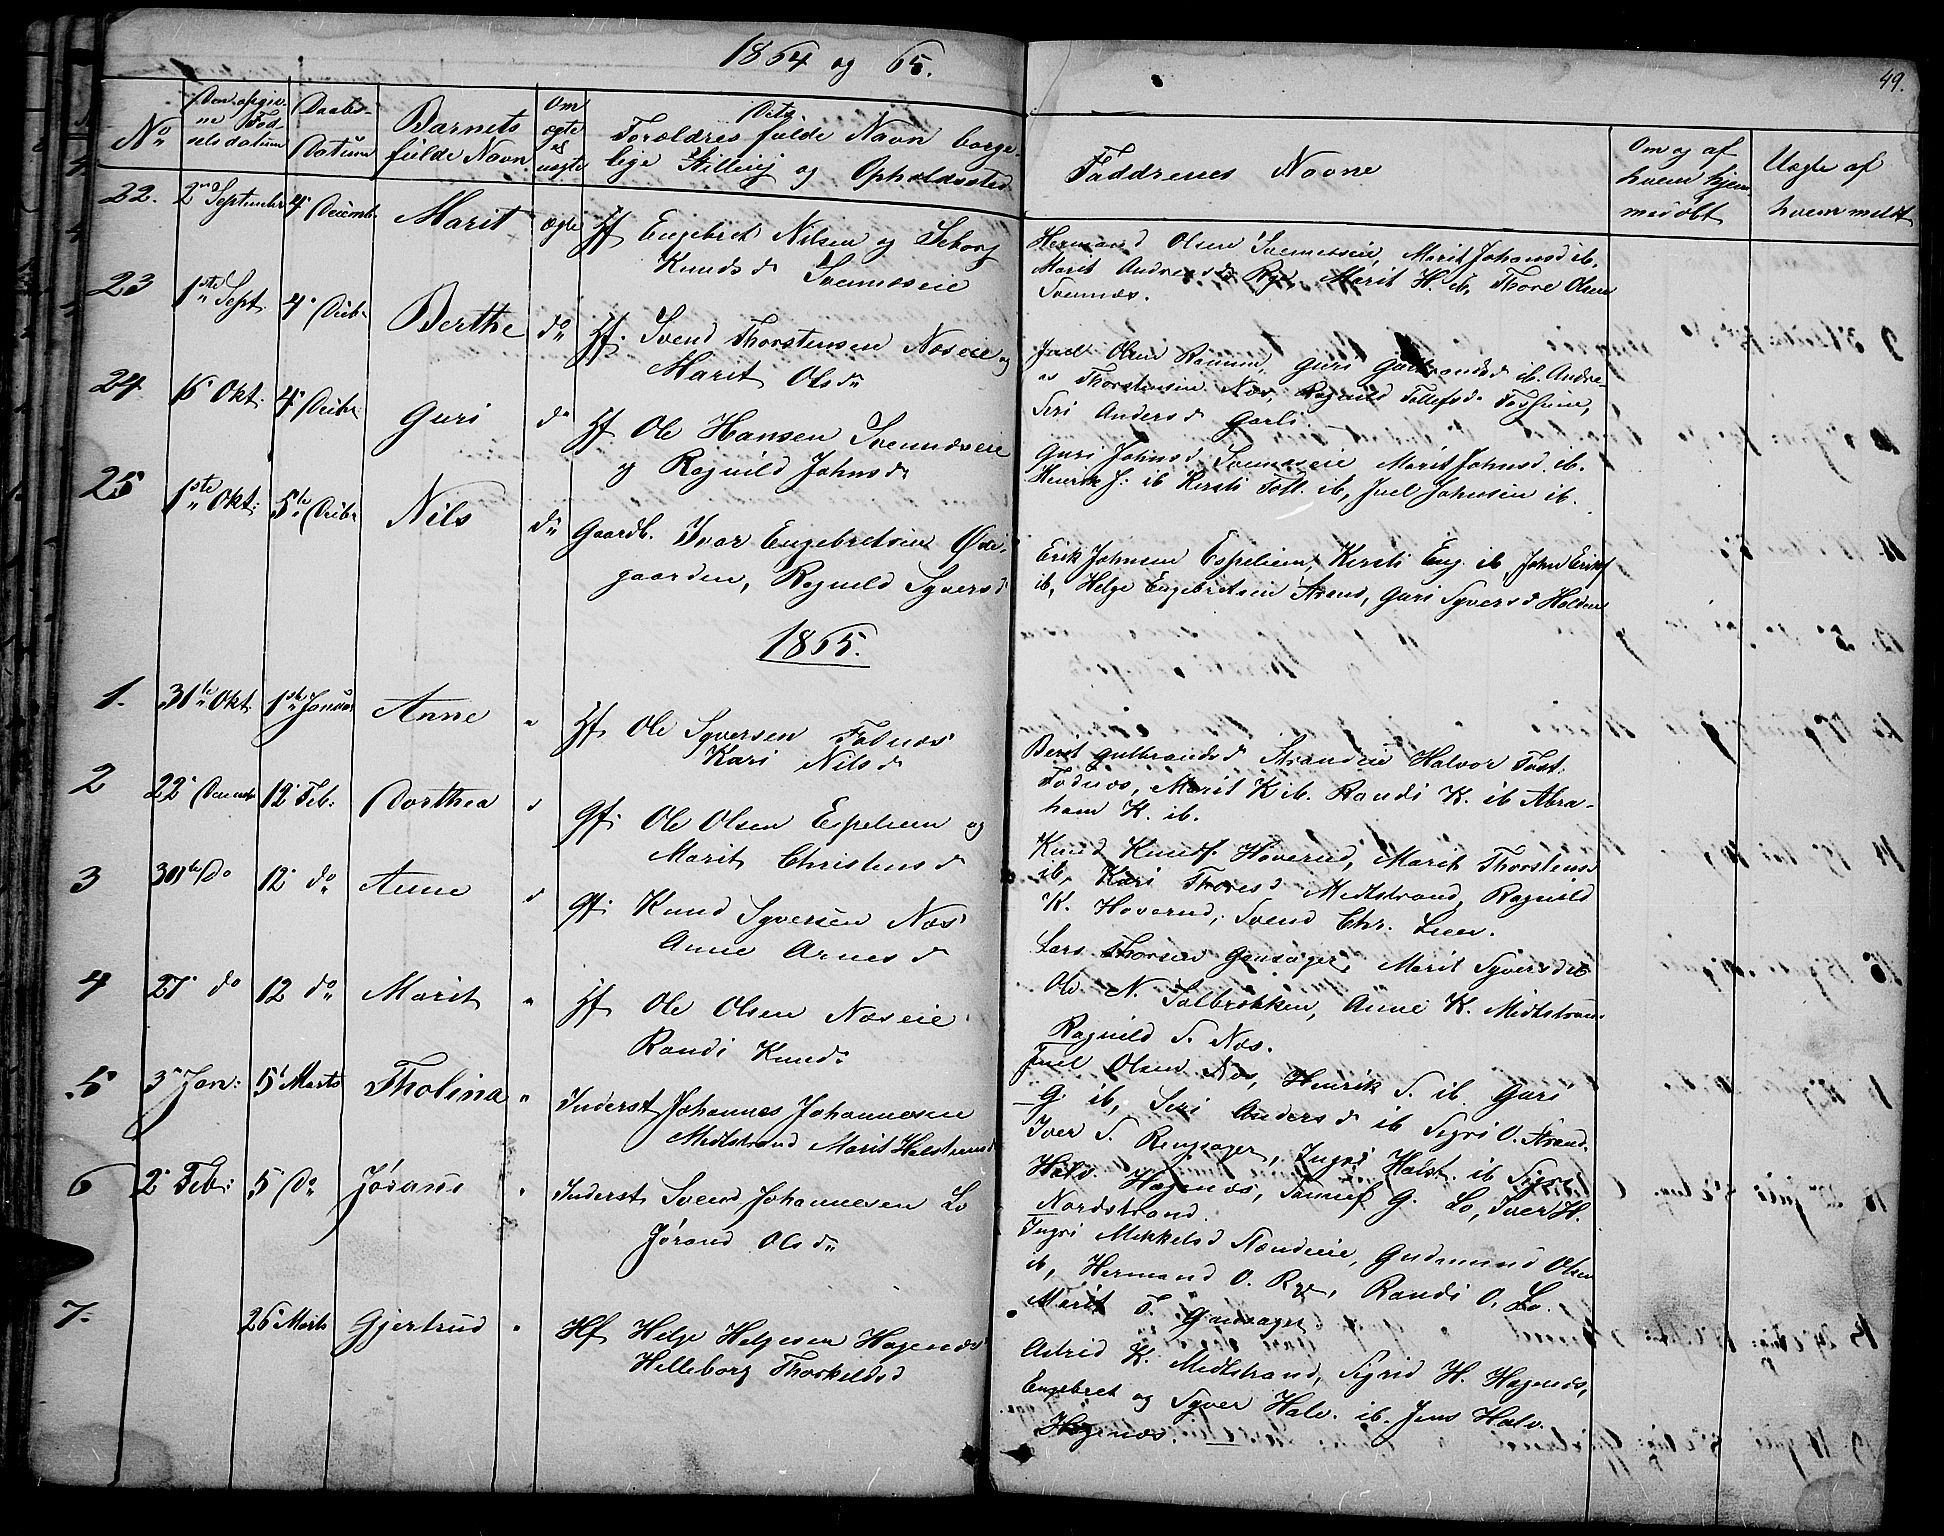 1864 og 65.
49.
No
Den opgivne Fødselsdatum
Daabs-Datum
Barnets fulde Navn
Om ægte og uægte
Dets Forældres fulde Navn borgelige Stilling og Opholdssted
Faddrenes Navne
Om og af hvem hjemmedøbt
Uægte af hvem meldt
22. 2 September 4 Decemb. Marit ægte Hf Engebret Nilsen og Seborg
Knudsd Svennæseie
Hermand Olsen Svennæseie, Marit Johansd ib.
Marit Andreasd Rye, Marit H. ib, Thore Olsen
Svennæs.
23 1ste Sept. 4 Decbr Berthe do Hf. Svend Thorstensen Næseie og
Marit Olsdr
Juel Olsen Ramm, Guri Gulbrandsd ib. Andre-
as Thorstensen Næs, Ragnild Tollefsd Fosheim,
Siri Andersd Garli.
24 15 Okt. 4 Decbr. Guri do Hf Ole Hansen Svennæseie
og Ragnild Johnsdr
Guri Johnsd Svennæseie Marit Johnsd. ib.
Henrik J: ib Kersti Toll. ib, Juel Johnsen ib.
25 1ste Okt: 5te Decbr Nils do Gaardb. Ivar Engebretsen Øvre-
gaarden, Ragnild Syversd
Erik Johnsen Espelien, Kersti Eng. ib, John Eriks
ib, Helge Engebretsen Strand, Guri Syversd Holden
1865.
1. 31te Okt. 1ste Januar Anne " Hf Ole Syversen Fodnæs
Kari Nilsd
Berit Gulbrandsd Strandeie Halvor Tost:
Fodnæs, Marit K ib. Randi K. ib Abra-
ham K. ib.
2 22 Decembr 12 Feb: Dorthea " Gf. Ole Olsen Espelien og
Marit Christensd
Knud Knuds. Hoverud, Marit Thorstensd
ib, Kari Thoresd Midtstrand, Ragnild
K. Hoverud, Svend Chr. Lien.
3 30te Do 12 do Anne " Gf. Knud Syversen Næs
Anne Arnesd
Lars Thorsen Gansager, Marit Syversd ib
Ole N. Solbrækken, Anne K. Midtstrand
Ragnild S. Næs.
4 27 do 12 do Marit " Hf Ole Olsen Næseie
Randi Knudsdr
Juel Olsen Næs, Henrik S. ib Guri
G. ib, Siri Andersd ib Sigri O. Strand.
5 3 Jan: 5 Marts Tholina " Inderst Johannes Johannesen
Midtstrand Marit Halstensd
Iver S. Rengsager, Ingri Halst. ib Sigri
Halv. Hagenæs, G. Lo, Iver H.
Nordstrand.
6 2 Feb: 5 Do Jørand " Inderst Svend Johannesen Lo
Jørand Olsdr
Ingri Mikkelsd Gudmund Olsen
ib, Hermand O. Rye, Randi O. Lo.
Marit T. Gansager
7. 26 Marts Gjertrud " Hf Helge Helgesen Hagenæs
Helleborg Thorkeldsd
Astrid K. Midtstrand, Sigrid H. Hagenæs,
Engebret og Syver Halv. ib. Jens Halv.
Hagenæs.